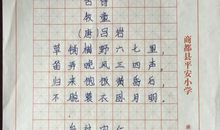 古诗
牧童
(唐)吕岩
草铺横野六七里,
笛弄晚风三四声。
归来饱饭黄昏后,
不脱蓑衣卧月明。
商都县平安小学